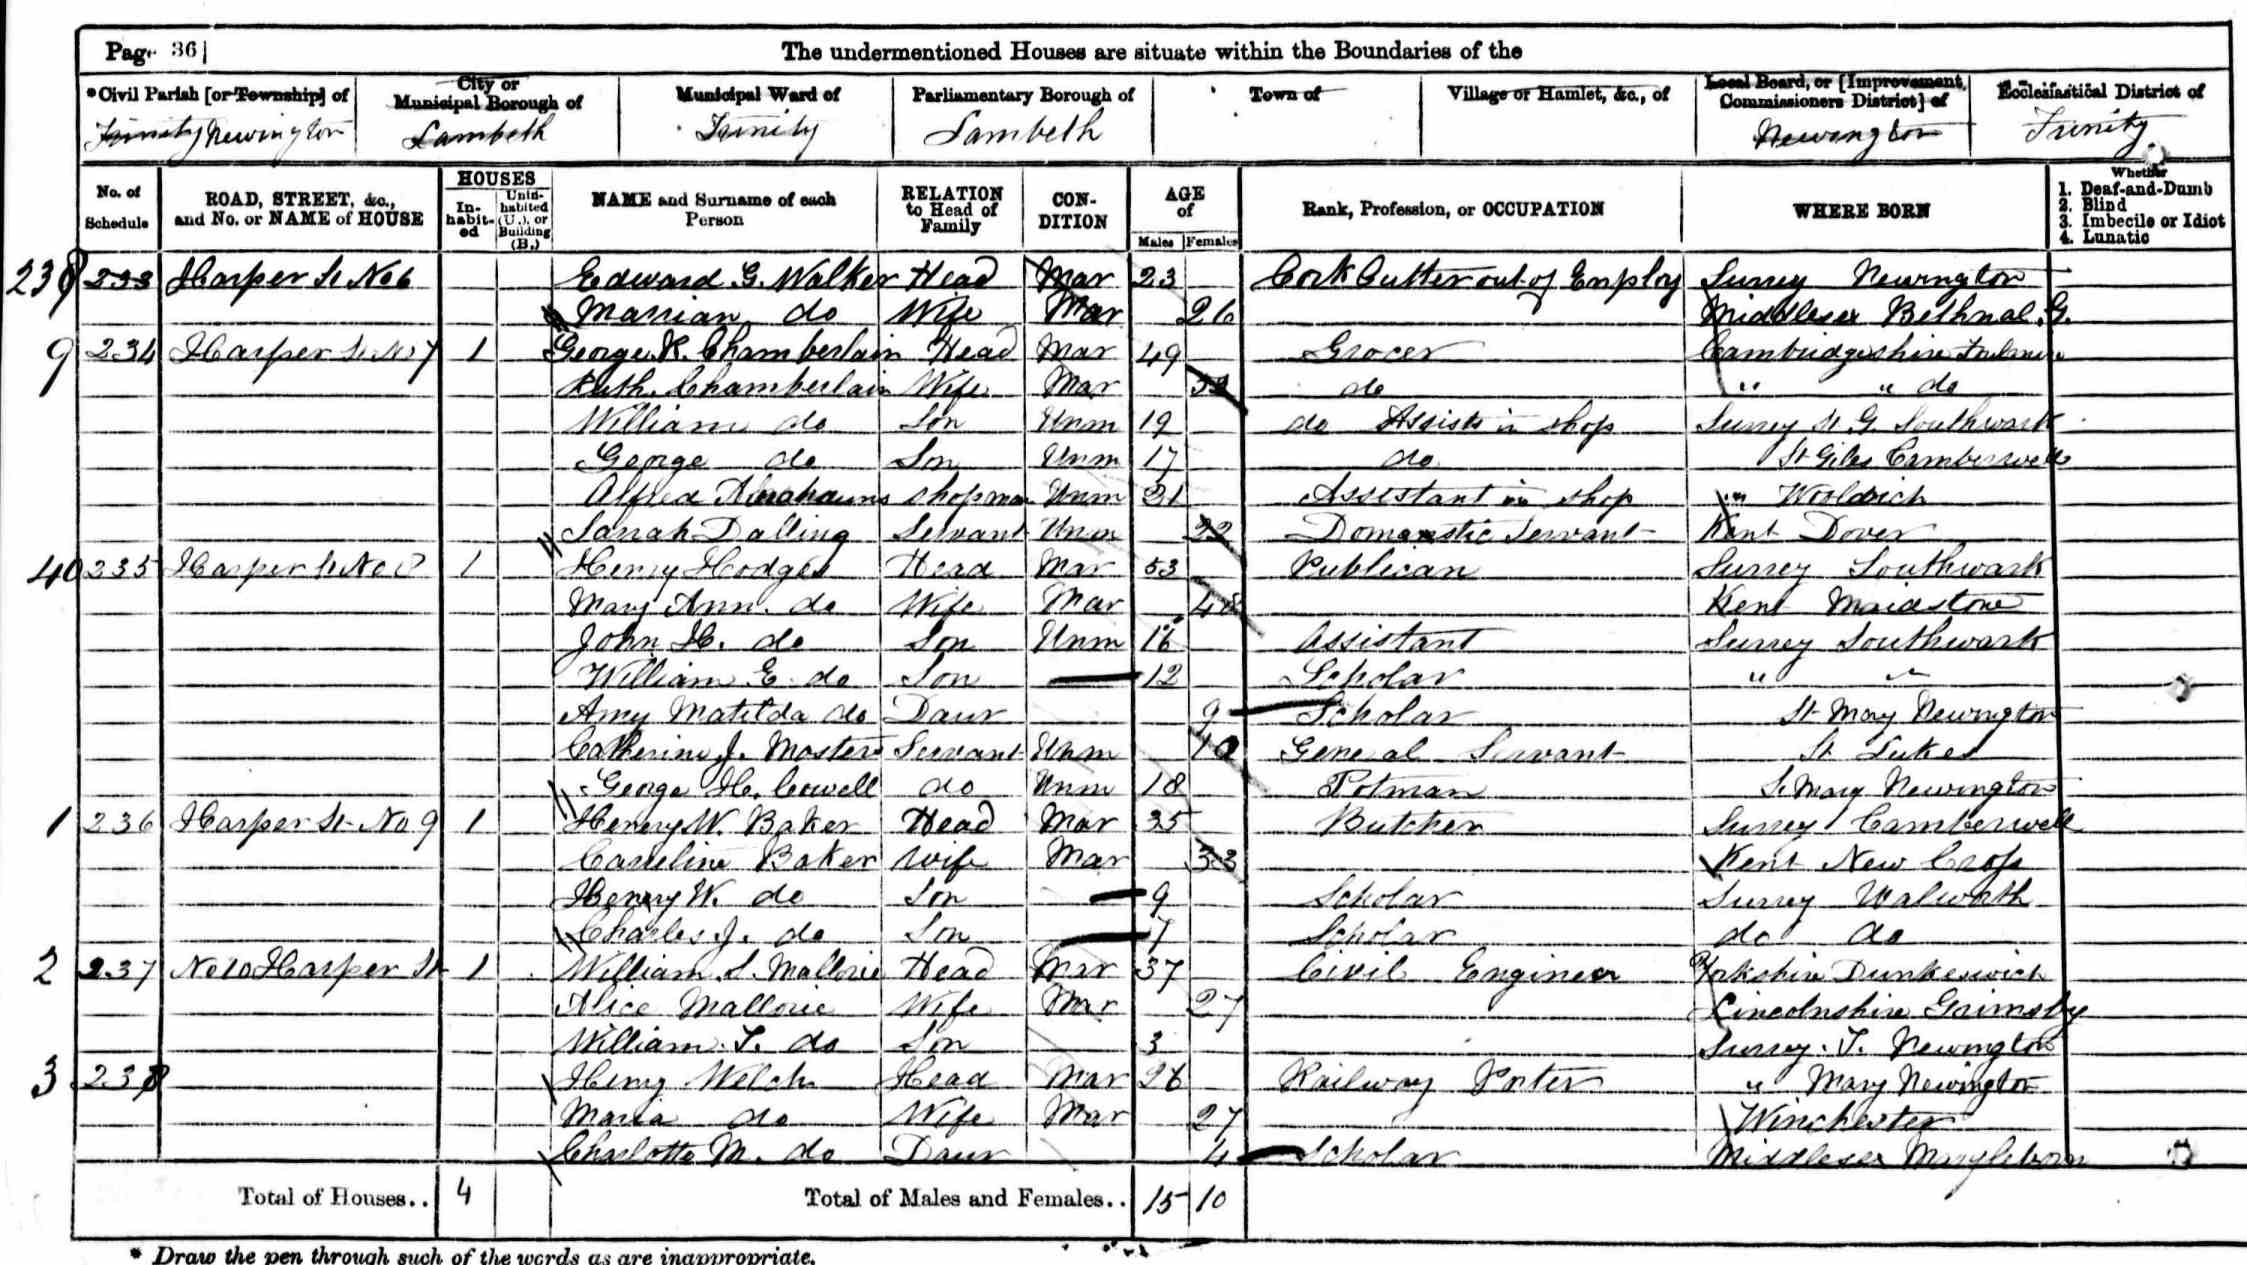 Page 36
The undermentioned Houses are situate within the Boundaries of the
*Civil Parish [or Township] of
City or Municipal Borough of
Municipal Ward of
Parliamentary Borough of
Town of
Village or Hamlet, &c., of
Local Board, or [Improvement Commissioners District] of
Ecclesiastical District of
Trinity Newington
Lambeth
Trinity
Lambeth
Newington
Trinity
No. of Schedule
ROAD, STREET, &c., and No. or NAME of HOUSE
HOUSES
In-habit-ed
Unin-habited (U.), or Building (B.)
NAME and Surname of each Person
RELATION to Head of Family
CON-DITION
AGE of
Males
Females
Rank, Profession, or OCCUPATION
WHERE BORN
Whether
1. Deaf-and-Dumb
2. Blind
3. Imbecile or Idiot
4. Lunatic
238 233 Harper St No 6 Edward G. Walker Head Mar 23 Cork Cutter out of Employ Surrey Newington
Marrian do Wife Mar 26 Middlesex Bethnal G.
9 234 Harper St No 7 1 George K. Chamberlain Head Mar 49 Grocer Cambridgeshire
Ruth Chamberlain Wife Mar do " " do
William do Son Unm 19 do Assists in shop Surrey St G. Southwark
George do Son Unm 17 do St Giles Camberwell
Alfred Abrahams Shopman Unm 21 Assistant in shop " Woolwich
Sarah Dalling Servant Unm 22 Domestic Servant Kent Dover
40 235 Harper St No 8 1 Henry Hodges Head Mar 53 Publican Surrey Southwark
Mary Ann do Wife Mar 48 Kent Maidstone
John H. do Son Unm 16 Assistant Surrey Southwark
William E. do Son 12 Scholar " "
Amy Matilda do Daur 9 Scholar St Mary Newington
Catherine J. Masters Servant Unm General Servant St Lukes
George H. Cowell do Unm 18 Potman St Mary Newington
1 236 Harper St No 9 1 Henry W. Baker Head Mar 35 Butcher Surrey Camberwell
Caroline Baker Wife Mar 33 Kent New Cross
Henry W. do Son 9 Scholar Surrey Walworth
Charles J. do Son 7 Scholar do do
2 237 No 10 Harper St 1 William S. Mallorie Head Mar 37 Civil Engineer Yorkshire Dunkeswick
Alice Mallorie Wife Mar 27 Lincolnshire Grimsby
William T. do Son 3 Surrey T. Newington
3 238 Henry Welch Head Mar 26 Railway Porter " Mary Newington
Maria do Wife Mar 27 Winchester
Charlotte M. do Daur 4 Scholar Middlesex Marylebon
Total of Houses.. 4
Total of Males and Females.. 15 10
* Draw the pen through such of the words as are inappropriate.